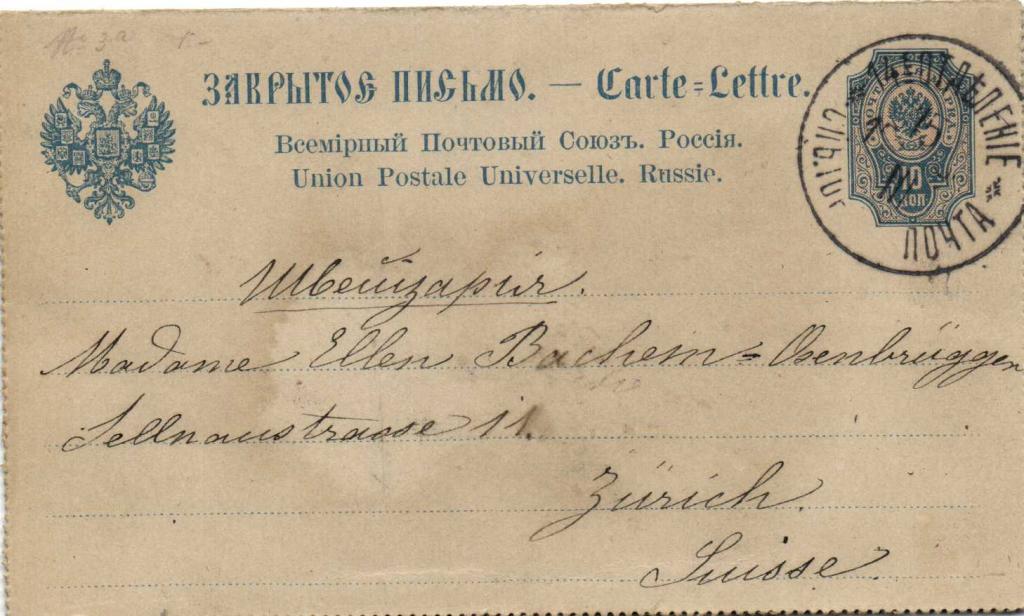 № 3a
ЗАКРЫТОЕ ПИСЬМО. — Carte-Lettre.
Всемірный Почтовый Союзъ. Россія.
Union Postale Universelle. Russie.
14 ЕОТДѢЛЕНІЕ
ПОЧТА
10
КОП
Швейцарія.
Madame Ellen Bachem-Osenbrüggen
Sellnaustrasse 11.
Zürich.
Suisse.